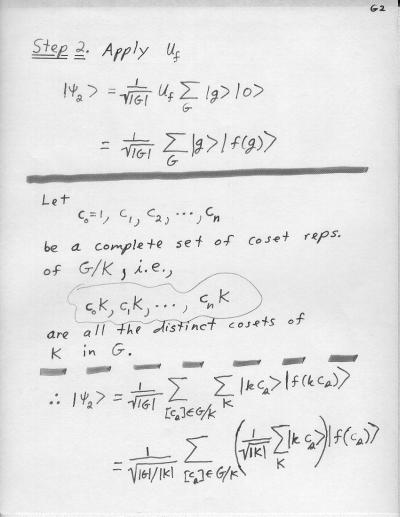 G2
Step 2. Apply U_f
|Ψ₂> = 1/√|G| U_f ∑_G |g>|0>
= 1/√|G| ∑_G |g>|f(g)>
Let
c₀=1, c₁, c₂, ..., cₙ
be a complete set of coset reps.
of G/K, i.e.,
c₀K, c₁K, ..., cₙK
are all the distinct cosets of
K in G.
∴ |Ψ₂> = 1/√|G| ∑_{[c_a]∈G/K} ∑_K |k c_a>|f(k c_a)>
= 1/√(|G|/|K|) ∑_{[c_a]∈G/K} (1/√|K| ∑_K |k c_a>)|f(c_a)>